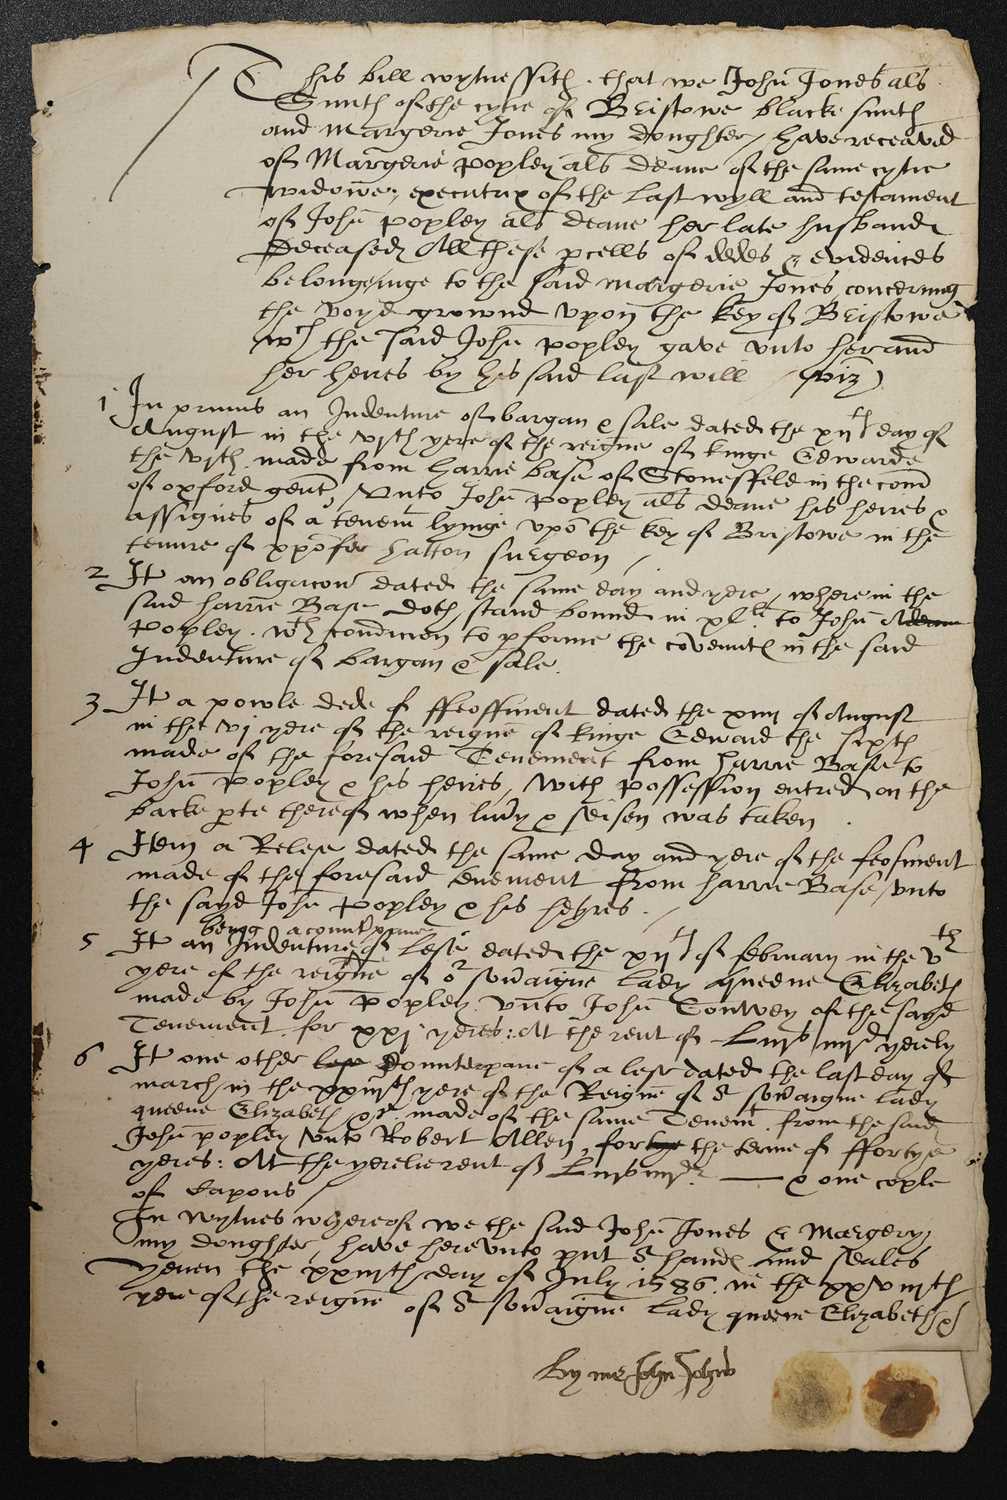 This bill wytnessith that we John Jones als
Smith of the cytie of Bristowe blacke smith
and Margerie Jones my doughter, have receaved
of Margerie Popley als Deane of the same cytie
widowe, executrix of the last wyll and testament
of John Popley als Deane her late husband
Deceased All these pcells of dedes & evidences
belonginge to the said Margerie Jones concerning
the voyd grownd vpon the key of Bristowe
wch the said John Popley gave vnto her and
her heires by his said last will (viz)
1 In primis an Indenture of bargan & sale dated the xijth day of
August in the vjth yere of the reigne of kinge Edwarde
the vjth made from Harrie Base of Stonesffeld in the com
of oxford gent, Vnto John Popley als Deane his heires &
assignes of a tenemt lyinge vpo the key of Bristowe in the
tenure of xpofer Hatton surgeon
2 It an obligacon dated the same day and yere, where in the
said Harrie Base doth stand bound in xl li to John Deane
Popley. wth condicion to pforme the covenntes in the said
Indenture of bargan & sale.
3 It a powle dede of ffeoffment dated the xiiij of August
in the vj yere of the reigne of kinge Edward the sixth
made of the foresaid Tenement from Harrie Base to
John Popley & his heires, with possession entred on the
backe pte thereof when livry & seisen was taken.
4 Item a Relese dated the same day and yere of the feofment
made of the foresaid tenement from Harrie Base, vnto
the sayd John Popley & his heyres.
being a countrpane
5 It an Indenture of Lese dated the xijth of february in the vth
yere of the reigne of or sovaigne lady Queene Elizabeth
made by John Popley vnto John Conwey of the sayd
Tenement for xxj yeres: At the rent of Liijs iiijd yerely
6 It one other lese Counterpane of a lese dated the last day of
march in the xxiijth yere of the Reigne of or sovaigne lady
queene Elizabeth &c made of the same Tenemt. from the said
John Popley Vnto Robert Allen, for the the terme of ffortye
yeres: At the yerelie rent of Liijs iiijd & one cople
of capons
In wytnes whereof we the said John Jones & Margery
my doughter, have herevnto put or handes and seales
yeven the xxiijth day of July 1586. in the xxviijth
yere of the reigne of or sovaigne lady queene Elizabeth &c
By me John Johns